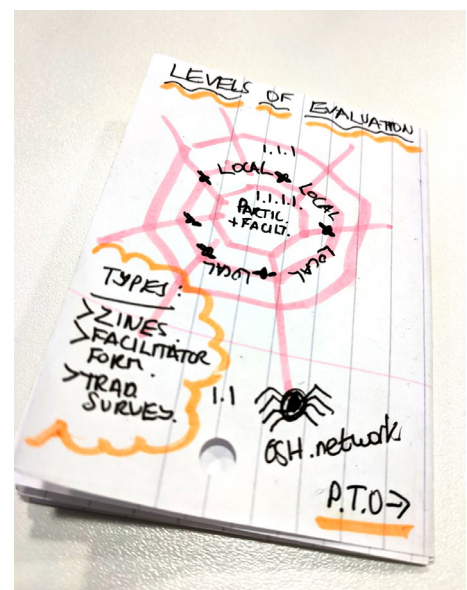 LEVELS OF EVALUATION
1.1.1
LOCAL
LOCAL
1.1.1.1.
PARTIC.
+ FACILT.
LOCAL
LOCAL
TYPES:
> ZINES.
> FACILITATOR
FORM.
> TRAD.
SURVEY.
1.1
OSH.network
P.T.O →